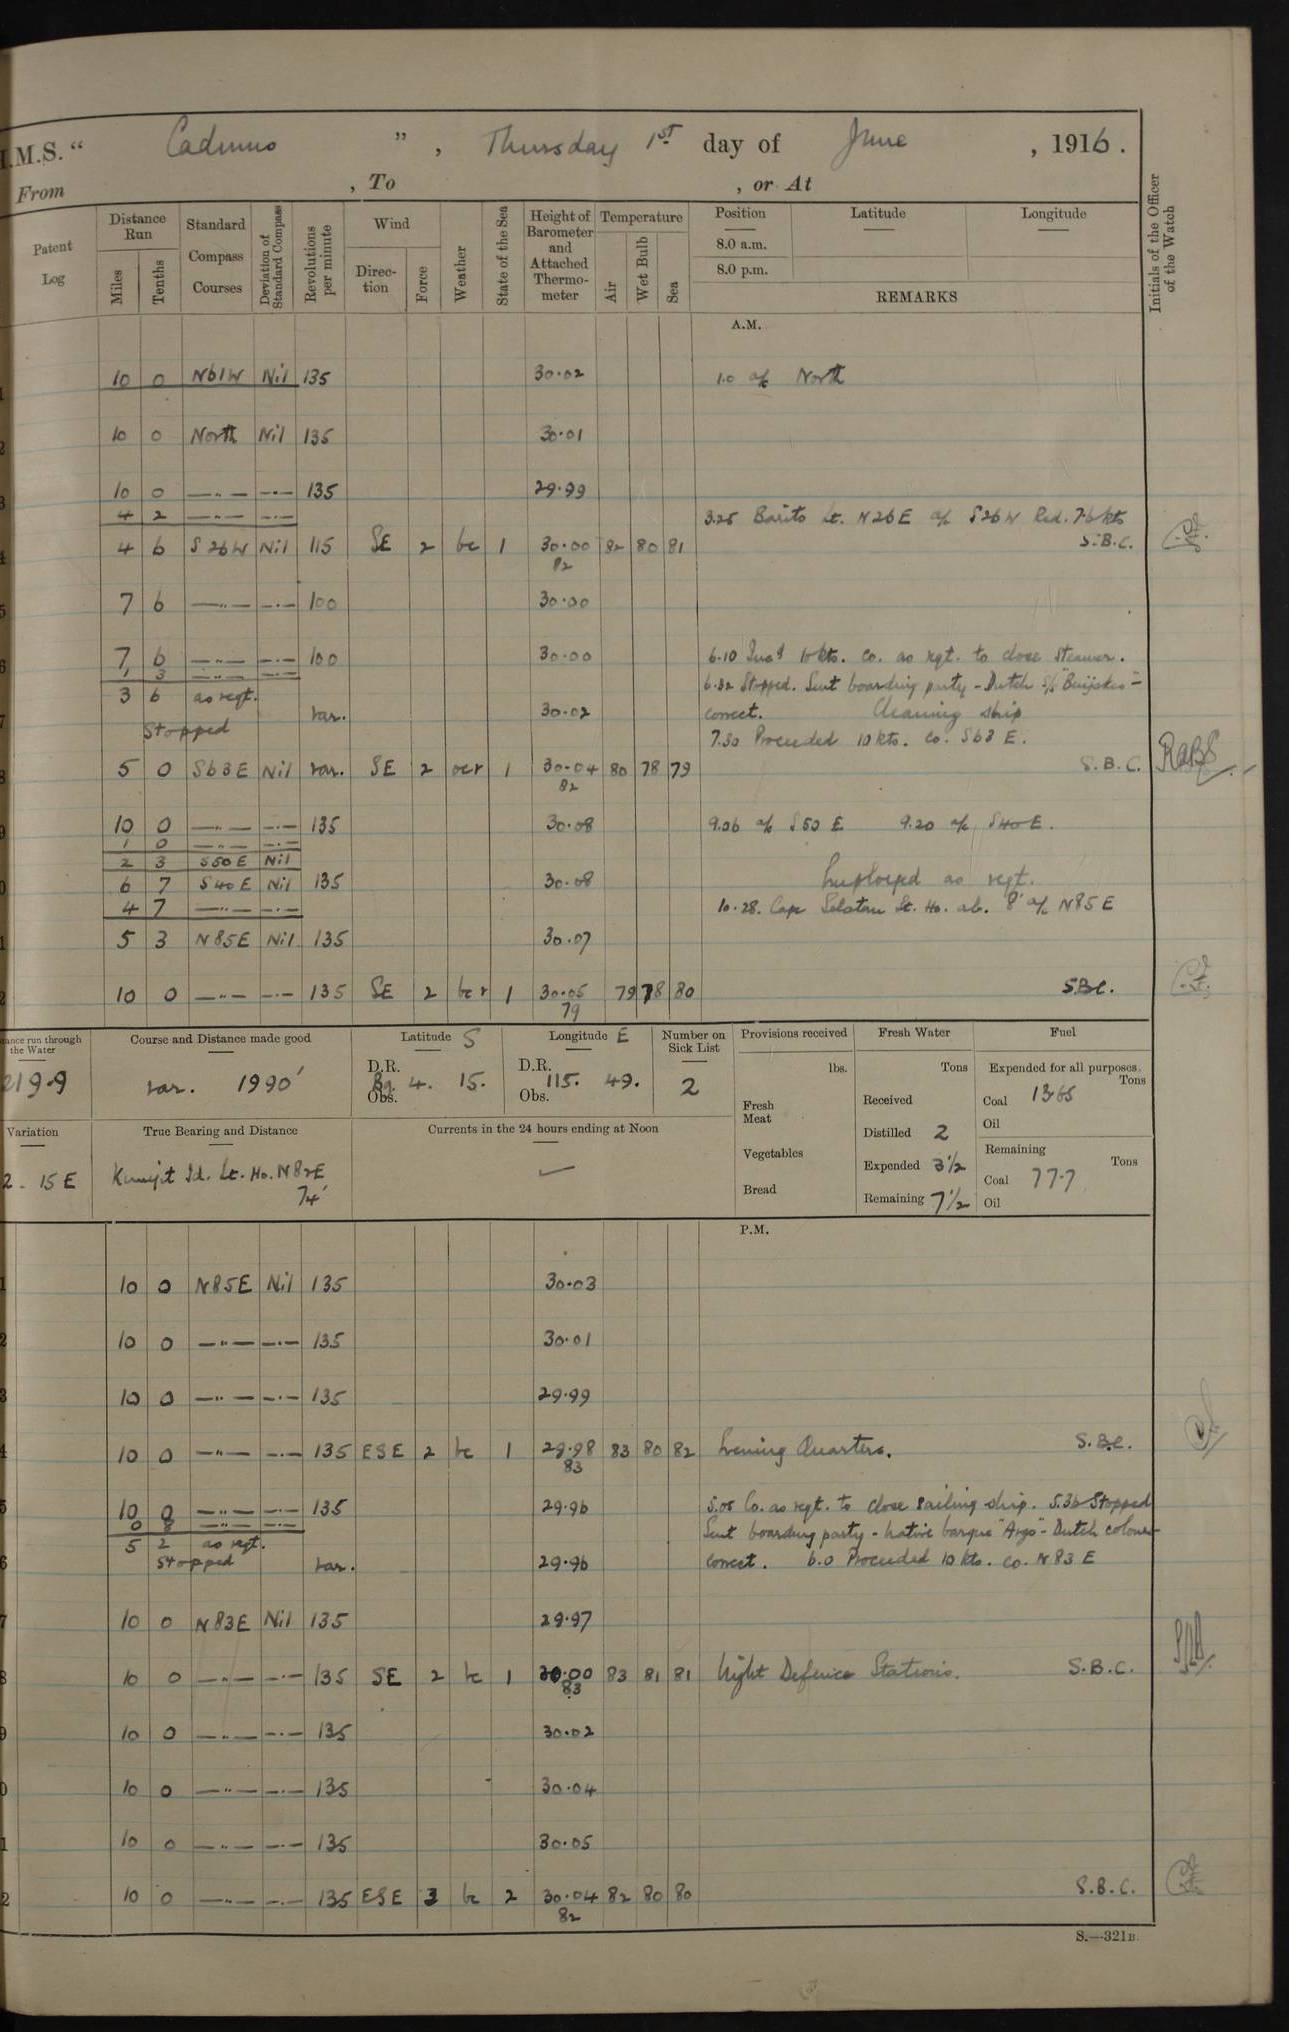 H.M.S. “ Cadmus ”, Thursday 1st day of June, 1916.
From , To , or At
Patent Log
Distance Run
Miles Tenths
Standard Compass Courses
Deviation of Standard Compass
Revolutions per minute
Wind
Direction Force
Weather
State of the Sea
Height of Barometer and Attached Thermometer
Temperature
Air Wet Bulb Sea
Position Latitude Longitude
8.0 a.m.
8.0 p.m.
REMARKS
Initials of the Officer of the Watch
A.M.
10 0 N61W Nil 135 30.02 1.0 a/c North
10 0 North Nil 135 30.01
10 0 —"— —"— 135 29.99
4 2 —"— —"— 3.25 Barito Lt. N26E a/c S26W Red. 7.6 kts
4 6 S26W Nil 115 SE 2 bc 1 30.00 82 80 81 S.B.C.
82
7 6 —"— —"— 100 30.00
7 6 —"— —"— 100 30.00 6.10 Incd 10 kts. Co. as reqt. to close steamer.
1 3 —"— —"— 6.32 Stopped. Sent boarding party - Dutch S/S "Buijskes" -
3 6 as reqt. var. 30.02 correct. Cleaning ship
Stopped 7.30 Proceeded 10 kts. Co. S63E.
5 0 S63E Nil var. SE 2 ocr 1 30.04 80 78 79 S.B.C.
82
10 0 —"— —"— 135 30.08 9.06 a/c S50E 9.20 a/c S40E.
1 0 —"— —"—
2 3 S50E Nil
6 7 S40E Nil 135 30.08 Employed as reqt.
4 7 —"— —"— 10.28. Cape Selatan Lt. Ho. ab. 8' a/c N85E
5 3 N85E Nil 135 30.07
10 0 —"— —"— 135 SE 2 bcr 1 30.05 79 78 80 S.B.C.
79
Distance run through the Water
219.9
Course and Distance made good
var. 1990'
Latitude S
D.R. 4. 15.
Obs.
Longitude E
D.R. 115. 49.
Obs.
Number on Sick List
2
Provisions received
lbs.
Fresh Meat
Vegetables
Bread
Fresh Water
Tons
Received
Distilled 2
Expended 3½
Remaining 7½
Fuel
Expended for all purposes.
Tons
Coal 13.65
Oil
Remaining
Tons
Coal 77.7
Oil
Variation
2. 15 E
True Bearing and Distance
Lt. Ho. N82E
74'
Currents in the 24 hours ending at Noon
P.M.
10 0 N85E Nil 135 30.03
10 0 —"— —"— 135 30.01
10 0 —"— —"— 135 29.99
10 0 —"— —"— 135 ESE 2 bc 1 29.98 83 80 82 Evening Quarters. S.B.C.
83
10 0 —"— —"— 135 29.96 5.05 Co. as reqt. to close sailing ship. 5.36 Stopped
0 8 —"— —"— Sent boarding party - native barque "Argo" - Dutch colours -
5 2 as reqt. var. 29.96 correct. 6.0 Proceeded 10 kts. Co. N83E
Stopped
10 0 N83E Nil 135 29.97
10 0 —"— —"— 135 SE 2 bc 1 30.00 83 81 81 Night Defence Stations. S.B.C.
83
10 0 —"— —"— 135 30.02
10 0 —"— —"— 135 30.04
10 0 —"— —"— 135 30.05
10 0 —"— —"— 135 ESE 3 bc 2 30.04 82 80 80 S.B.C.
82
S.—321B.